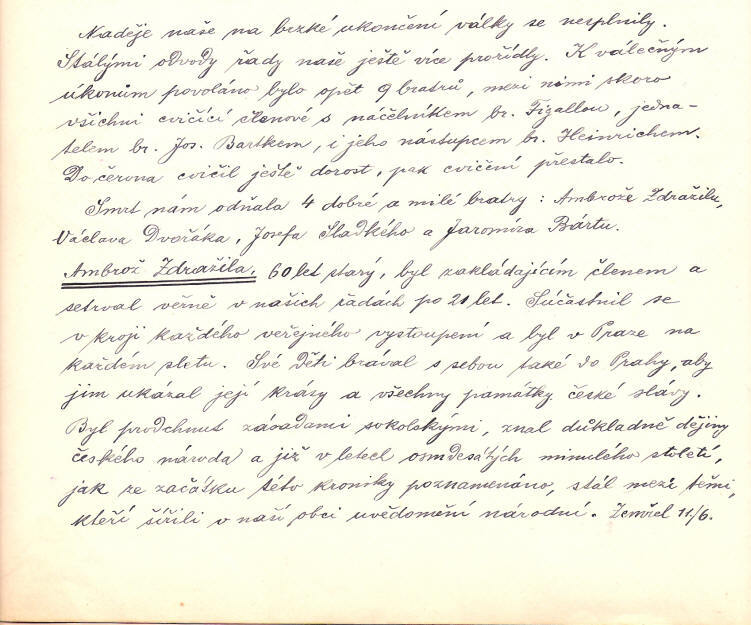 Naděje naše na brzké ukončení války se nesplnily.
Stálými odvody řady naše ještě více prořídly. K válečným
úkonům povoláno bylo opět 9 bratrů, mezi nimi skoro
všichni cvičící členové s náčelníkem br. Figallou, jedna-
telem br. Jos. Bartkem, i jeho nástupcem br. Heinrichem.
Do června cvičil ještě dorost, pak cvičení přestalo.
Smrt nám odňala 4 dobré a milé bratry : Ambrože Zdražilu,
Václava Dvořáka, Josefa Sladkého a Jaromíra Bártu.
Ambrož Zdražila, 60 let starý, byl zakládajícím členem a
setrval věrně v našich řadách po 21 let. Súčastnil se
v kroji každého veřejného vystoupení a byl v Praze na
každém sletu. Své děti brával s sebou také do Prahy, aby
jim ukázal její krásy a všechny památky české slávy.
Byl prodchnut zásadami sokolskými, znal důkladně dějiny
českého národa a již v letech osmdesátých minulého století,
jak ze začátku této kroniky poznamenáno, stál mezi těmi,
kteří šířili v naší obci uvědomění národní. Zemřel 11./6.